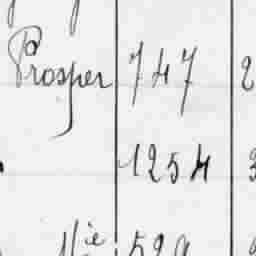 Prosper 747 2
1254 3
529